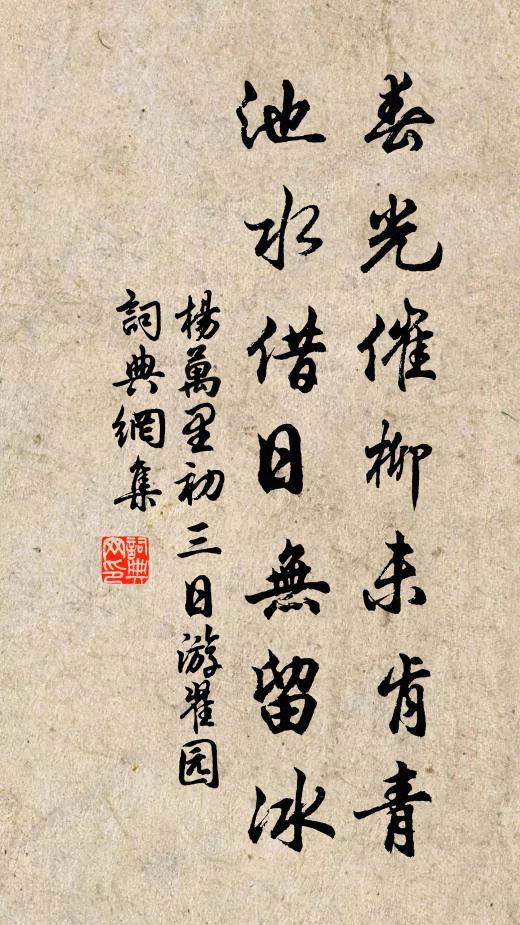 春光催柳未肯青
池水借日無留冰
楊萬里初三日游翟园
詞典網集
詞典网印